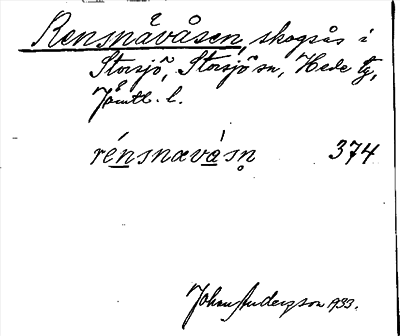 Rensnåvåsen, skogsås i
Storsjö, Storsjö sn, Hede tg,
Jämtl. l.
rénsnævásn̥ 374
Johan Andersson 1933.